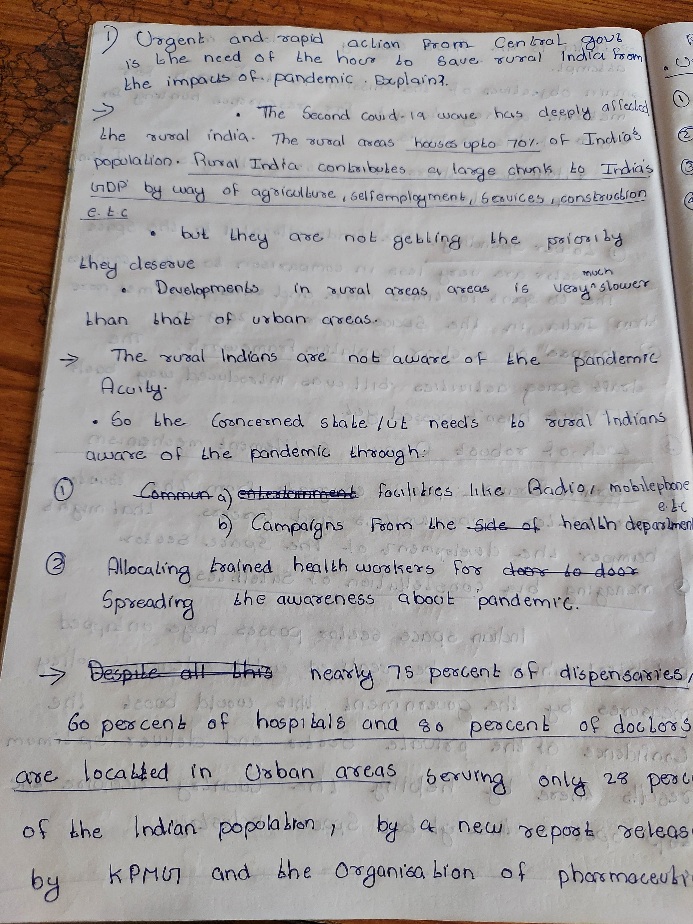 1) Urgent and rapid action from Central govt
is the need of the hour to save rural India from
the impacts of pandemic. Explain?.
→ • The Second covid-19 wave has deeply affected
the rural india. The rural areas houses upto 70% of India's
population. Rural India contributes a large chunk to India's
GDP by way of agriculture, selfemployment, Services, construction
e.t.c
• but they are not getting the priority
they deserve
• Developments in rural areas areas is very much slower
than that of urban areas.
→ The rural Indians are not aware of the pandemic
Acuity.
• So the Cooncerned state/ut needs to rural Indians
aware of the pandemic through:
① Commun a) entertainment facilities like Radio, mobilephone
e.t.c
b) Campaigns from the side of health departmen
② Allocating trained health workers for door to door
Spreading the awareness about pandemic.
→ Despite all this nearly 75 percent of dispensaries,
60 percent of hospitals and 80 percent of doctors
are locatted in Urban areas serving only 28 perc
of the Indian popolation, by a new report releas
by KPMG and the Organisation of pharmaceuti